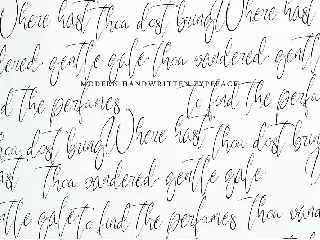 Where hast thou dost bring Where hast
dered gentle gale thou wandered gentle
MODERN HANDWRITTEN TYPEFACE
d the perfumes to find the perfu
hou dost bring Where hast thou dost bring
ast thou wandered gentle gale
ntle gale to find the perfumes thou wand